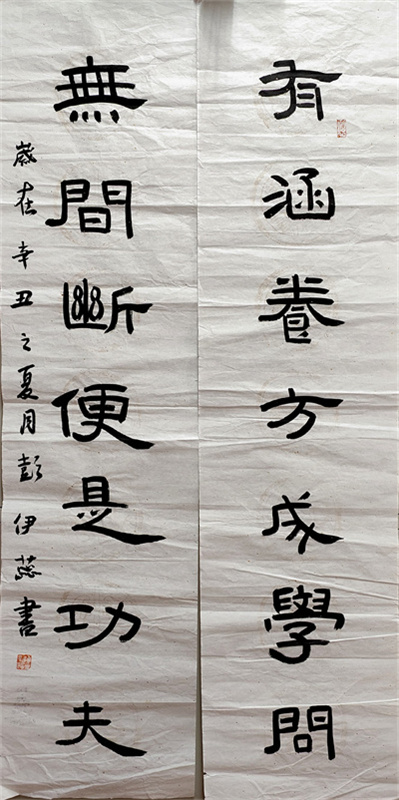 有涵養方成學問
無間斷便是功夫
歲在辛丑之夏月彭伊蕊書